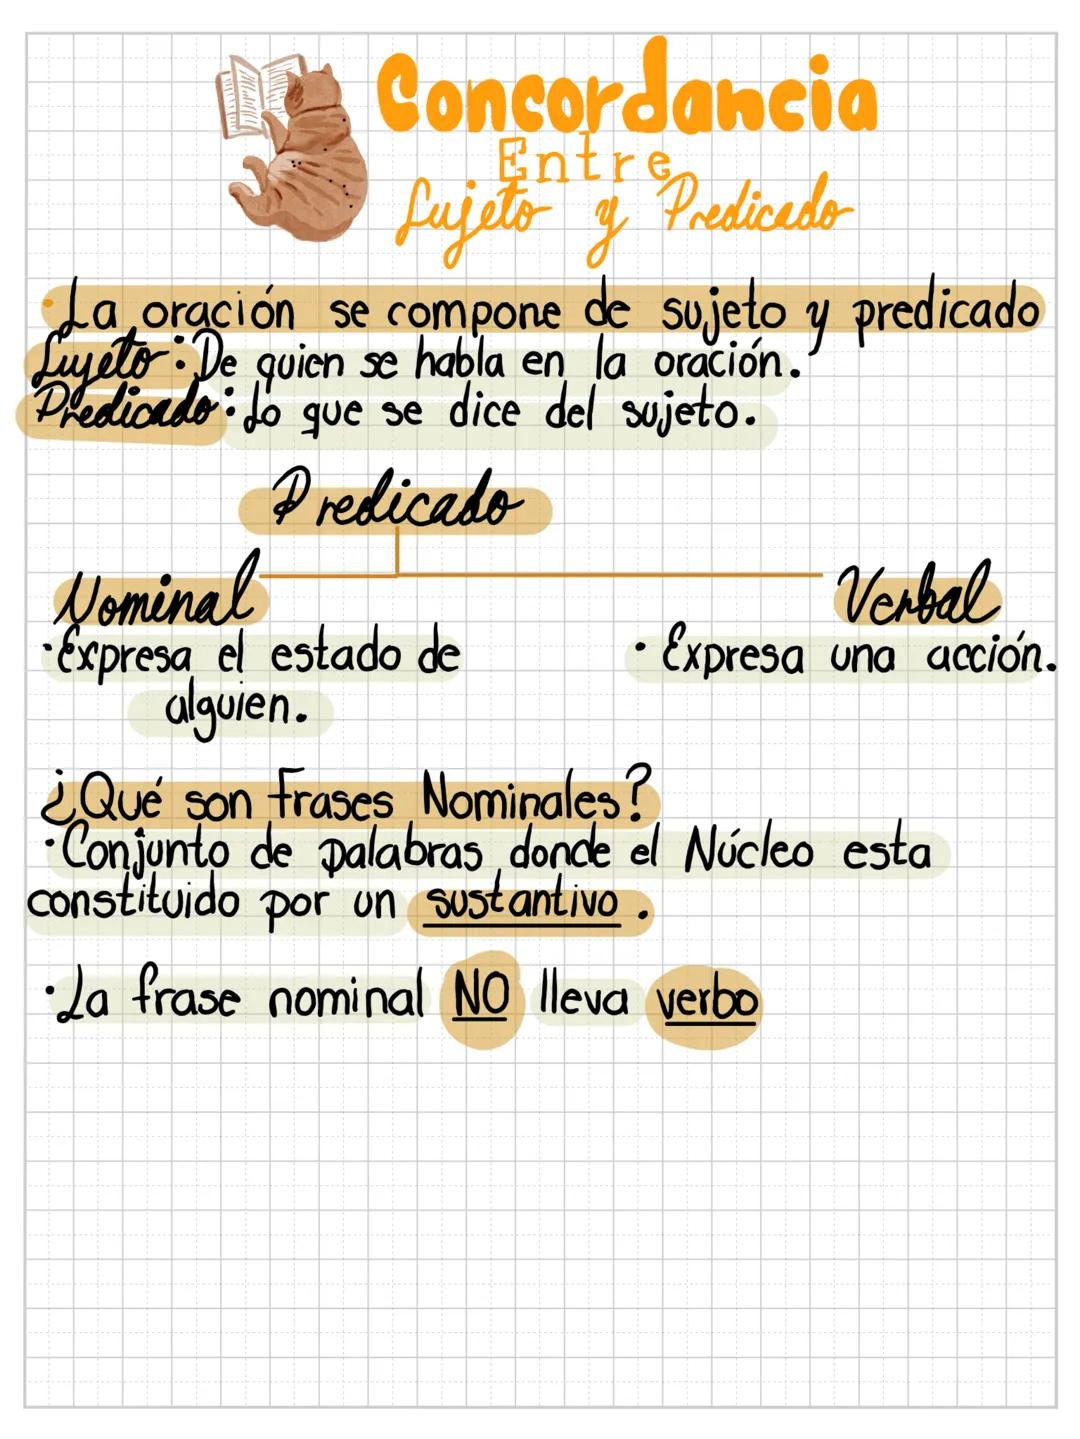 Concordancia
Entre
Sujeto y Predicado
·La oración se compone de sujeto y predicado
Sujeto: De quien se habla en la oración.
Predicado: Lo que se dice del sujeto.
Predicado
Nominal
Verbal
·Expresa el estado de
alguien.
· Expresa una acción.
¿Qué son Frases Nominales?
·Conjunto de palabras donde el Núcleo esta
constituido por un sustantivo.
·La frase nominal NO lleva verbo